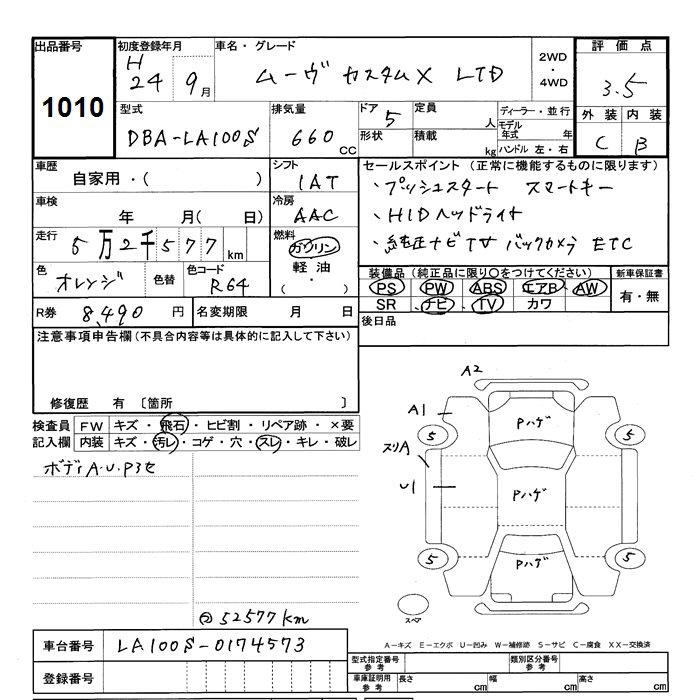 出品番号 初度登録年月 車名・グレード 2WD・4WD 評価点
1010 H24 9月 ムーヴ カスタムX LTD 3.5
型式 排気量 ドア 定員 ディーラー・並行 外装 内装
DBA-LA100S 660cc 5 人 モデル年式 年 C B
形状 積載 kg ハンドル 左・右
車歴 シフト セールスポイント(正常に機能するものに限ります)
自家用・( ) IAT ・プッシュスタート スマートキー
車検 冷房 ・HIDヘッドライト
年 月( 日) AAC ・純正ナビTV バックカメラ ETC
走行 燃料
5万2千577km ガソリン
色 色替 色コード 軽油 装備品(純正品に限り○をつけてください) 新車保証書
オレンジ R64 ( ・ ) PS PW ABS エアB AW 有・無
SR ナビ TV カワ
R券 8,490円 名変期限 月 日 後日品
注意事項申告欄(不具合内容等は具体的に記入して下さい)
修復歴 有 〔箇所 〕
検査員 FW キズ・飛石・ヒビ割・リペア跡・×要
記入欄 内装 キズ・汚レ・コゲ・穴・スレ・キレ・破レ
ボディA・U・Pヨセ
A2
A1 Pハゲ
5 5
スリA
U1 Pハゲ
Pハゲ
5 5
スペア
52577km
A-キズ E-エクボ U-凹み W-補修跡 S-サビ C-腐食 XX-交換済
車台番号 LA100S-0174573
型式指定番号 参考 類別区分番号 参考
登録番号 車庫証明用 参考 長さ cm 幅 cm 高さ cm